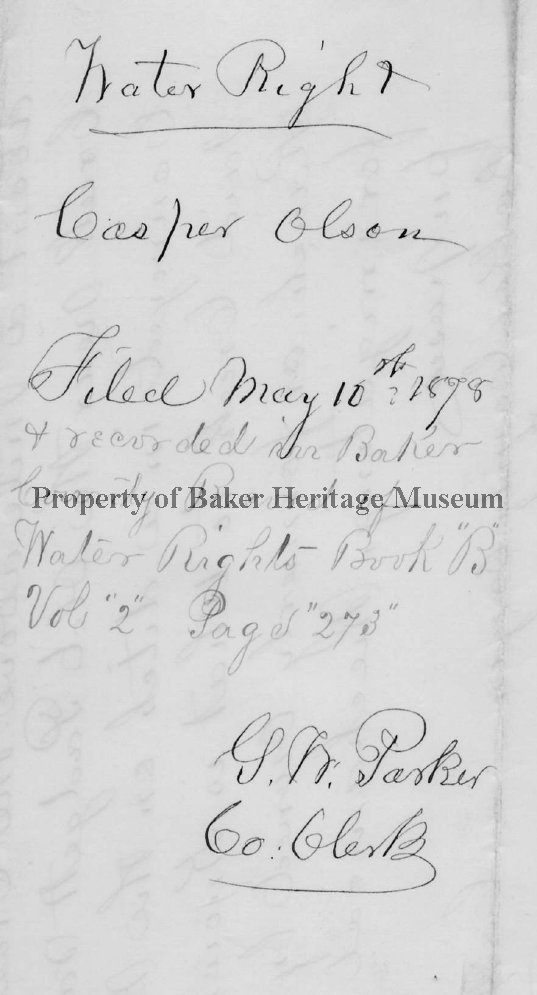 Water Right
Casper Olson
Filed May 10th 1898
& recorded in Baker
County Record of
Property of Baker Heritage Museum
Water Rights Book "B"
Vol "2" Page "273"
G. W. Parker
Co. Clerk